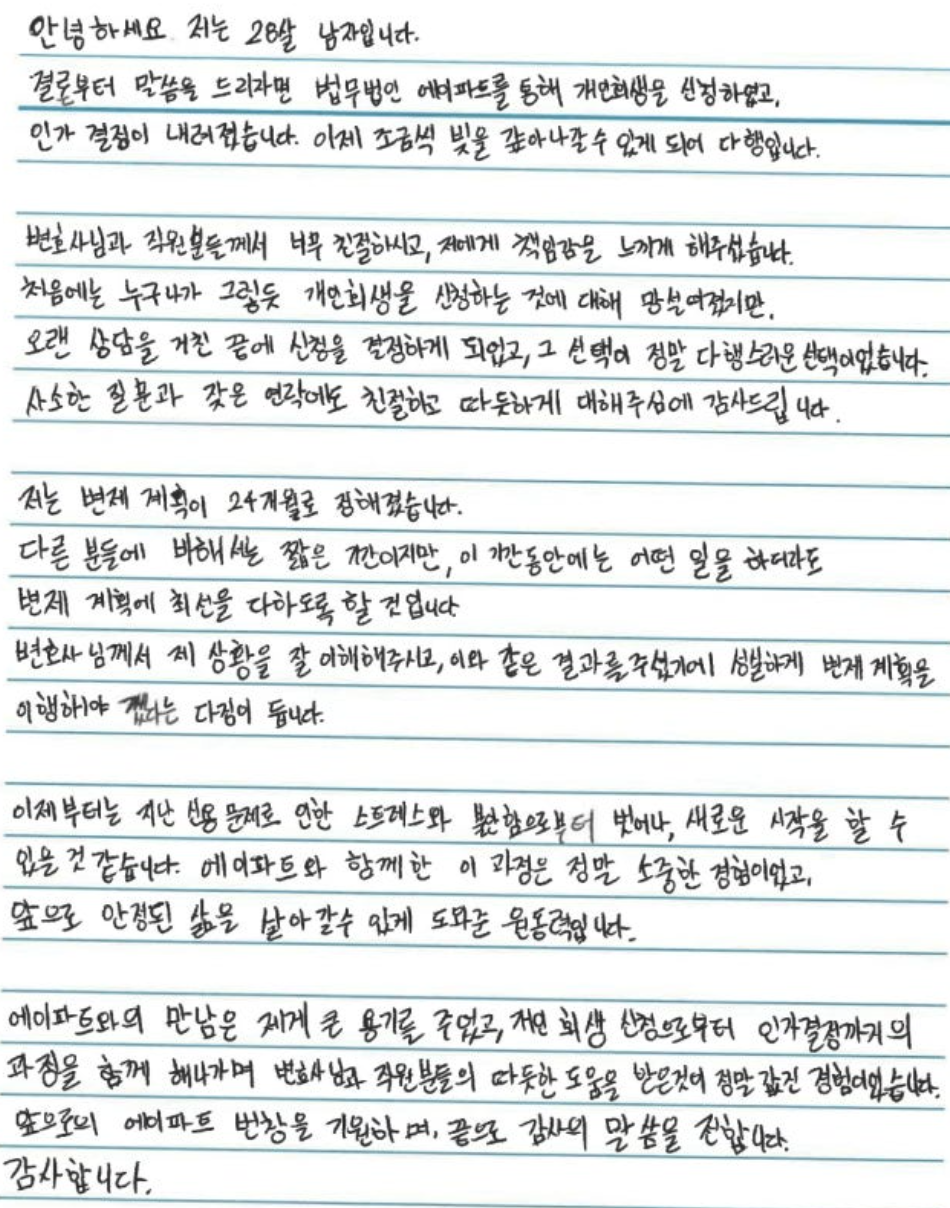 안녕하세요 저는 28살 남자입니다.
결론부터 말씀을 드리자면 법무법인 에이파트를 통해 개인회생을 신청하였고,
인가 결정이 내려졌습니다. 이제 조금씩 빚을 갚아나갈 수 있게 되어 다행입니다.
변호사님과 직원분들께서 너무 친절하시고, 저에게 책임감을 느끼게 해주셨습니다.
처음에는 누구나가 그렇듯 개인회생을 신청하는 것에 대해 망설여졌지만,
오랜 상담을 거친 끝에 신청을 결정하게 되었고, 그 선택이 정말 다행스러운 선택이었습니다.
사소한 질문과 잦은 연락에도 친절하고 따듯하게 대해주심에 감사드립니다.
저는 변제 계획이 24개월로 정해졌습니다.
다른 분들에 비해서는 짧은 기간이지만, 이 기간동안에는 어떤 일을 하더라도
변제 계획에 최선을 다하도록 할 것입니다
변호사님께서 제 상황을 잘 이해해주시고, 이와 같은 결과를 주셨기에 성실하게 변제 계획을
이행해야 겠다는 다짐이 듭니다.
이제부터는 지난 신용 문제로 인한 스트레스와 불안함으로부터 벗어나, 새로운 시작을 할 수
있을 것 같습니다. 에이파트와 함께한 이 과정은 정말 소중한 경험이었고,
앞으로 안정된 삶을 살아갈수 있게 도와준 원동력입니다.
에이파트와의 만남은 제게 큰 용기를 주었고, 개인 회생 신청으로부터 인가결정까지의
과정을 함께 해나가며 변호사님과 직원분들의 따듯한 도움을 받은것이 정말 값진 경험이었습니다.
앞으로의 에이파트 번창을 기원하며, 끝으로 감사의 말씀을 전합니다.
감사합니다.